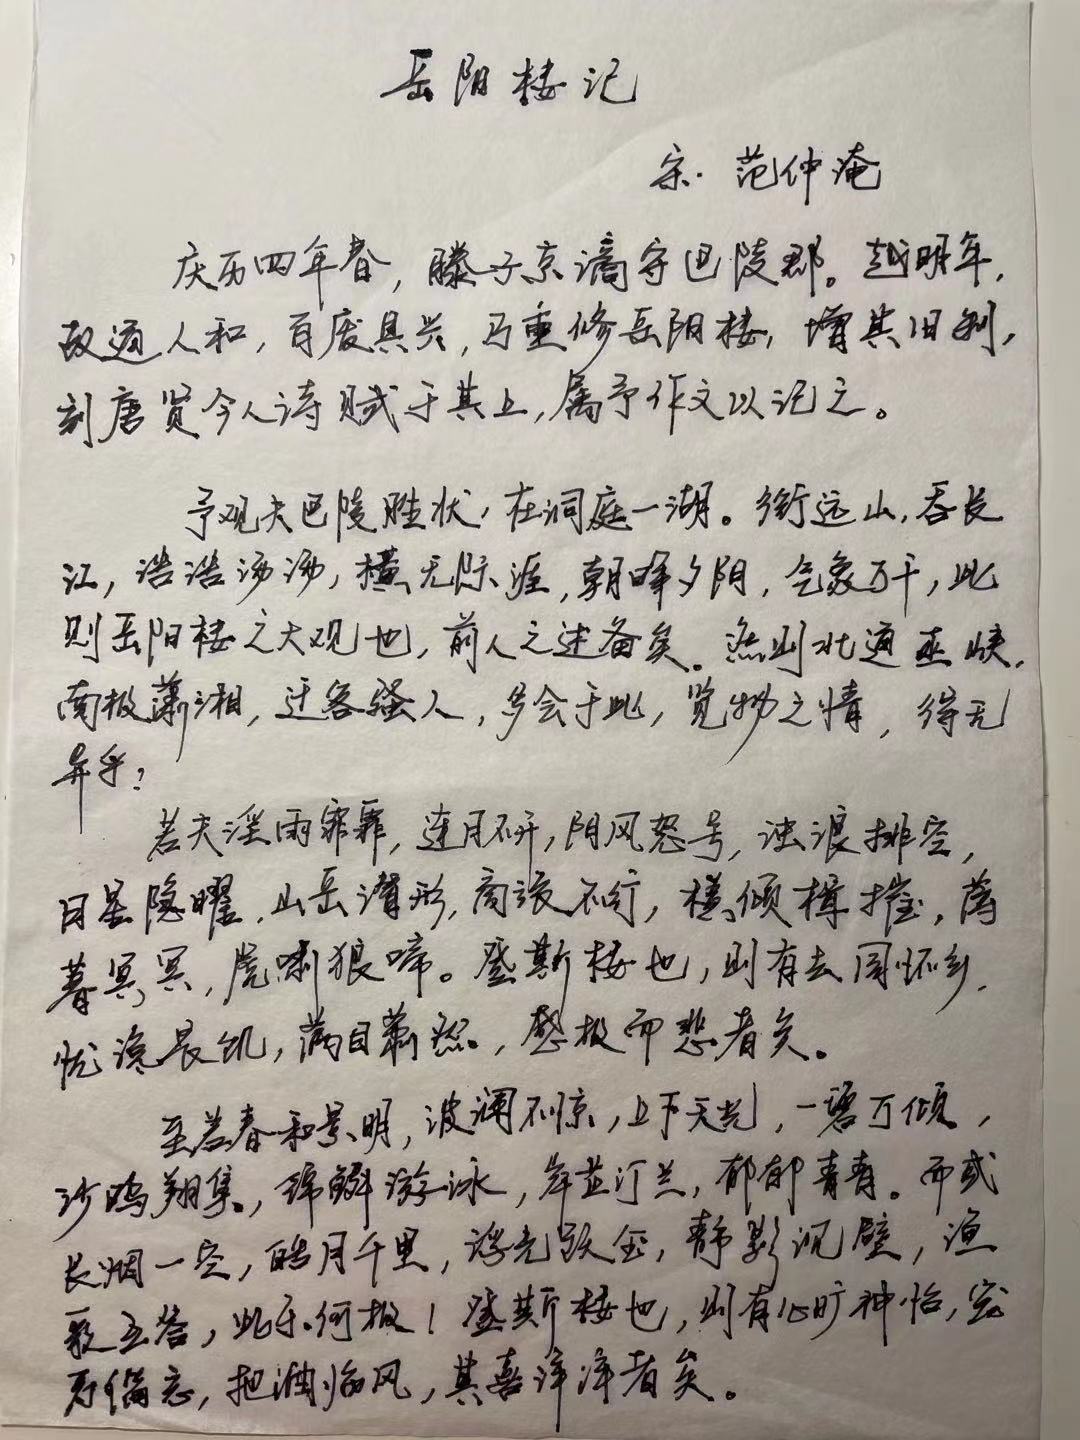 岳阳楼记
宋·范仲淹
庆历四年春，滕子京谪守巴陵郡。越明年，
政通人和，百废具兴，乃重修岳阳楼，增其旧制，
刻唐贤今人诗赋于其上，属予作文以记之。
予观夫巴陵胜状，在洞庭一湖。衔远山，吞长
江，浩浩汤汤，横无际涯，朝晖夕阴，气象万千，此
则岳阳楼之大观也，前人之述备矣。然则北通巫峡，
南极潇湘，迁客骚人，多会于此，览物之情，得无
异乎？
若夫淫雨霏霏，连月不开，阴风怒号，浊浪排空，
日星隐曜，山岳潜形，商旅不行，樯倾楫摧，薄
暮冥冥，虎啸狼啼。登斯楼也，则有去国怀乡，
忧谗畏讥，满目萧然，感极而悲者矣。
至若春和景明，波澜不惊，上下天光，一碧万顷，
沙鸥翔集，锦鳞游泳，岸芷汀兰，郁郁青青。而或
长烟一空，皓月千里，浮光跃金，静影沉璧，渔
歌互答，此乐何极！登斯楼也，则有心旷神怡，宠
辱偕忘，把酒临风，其喜洋洋者矣。